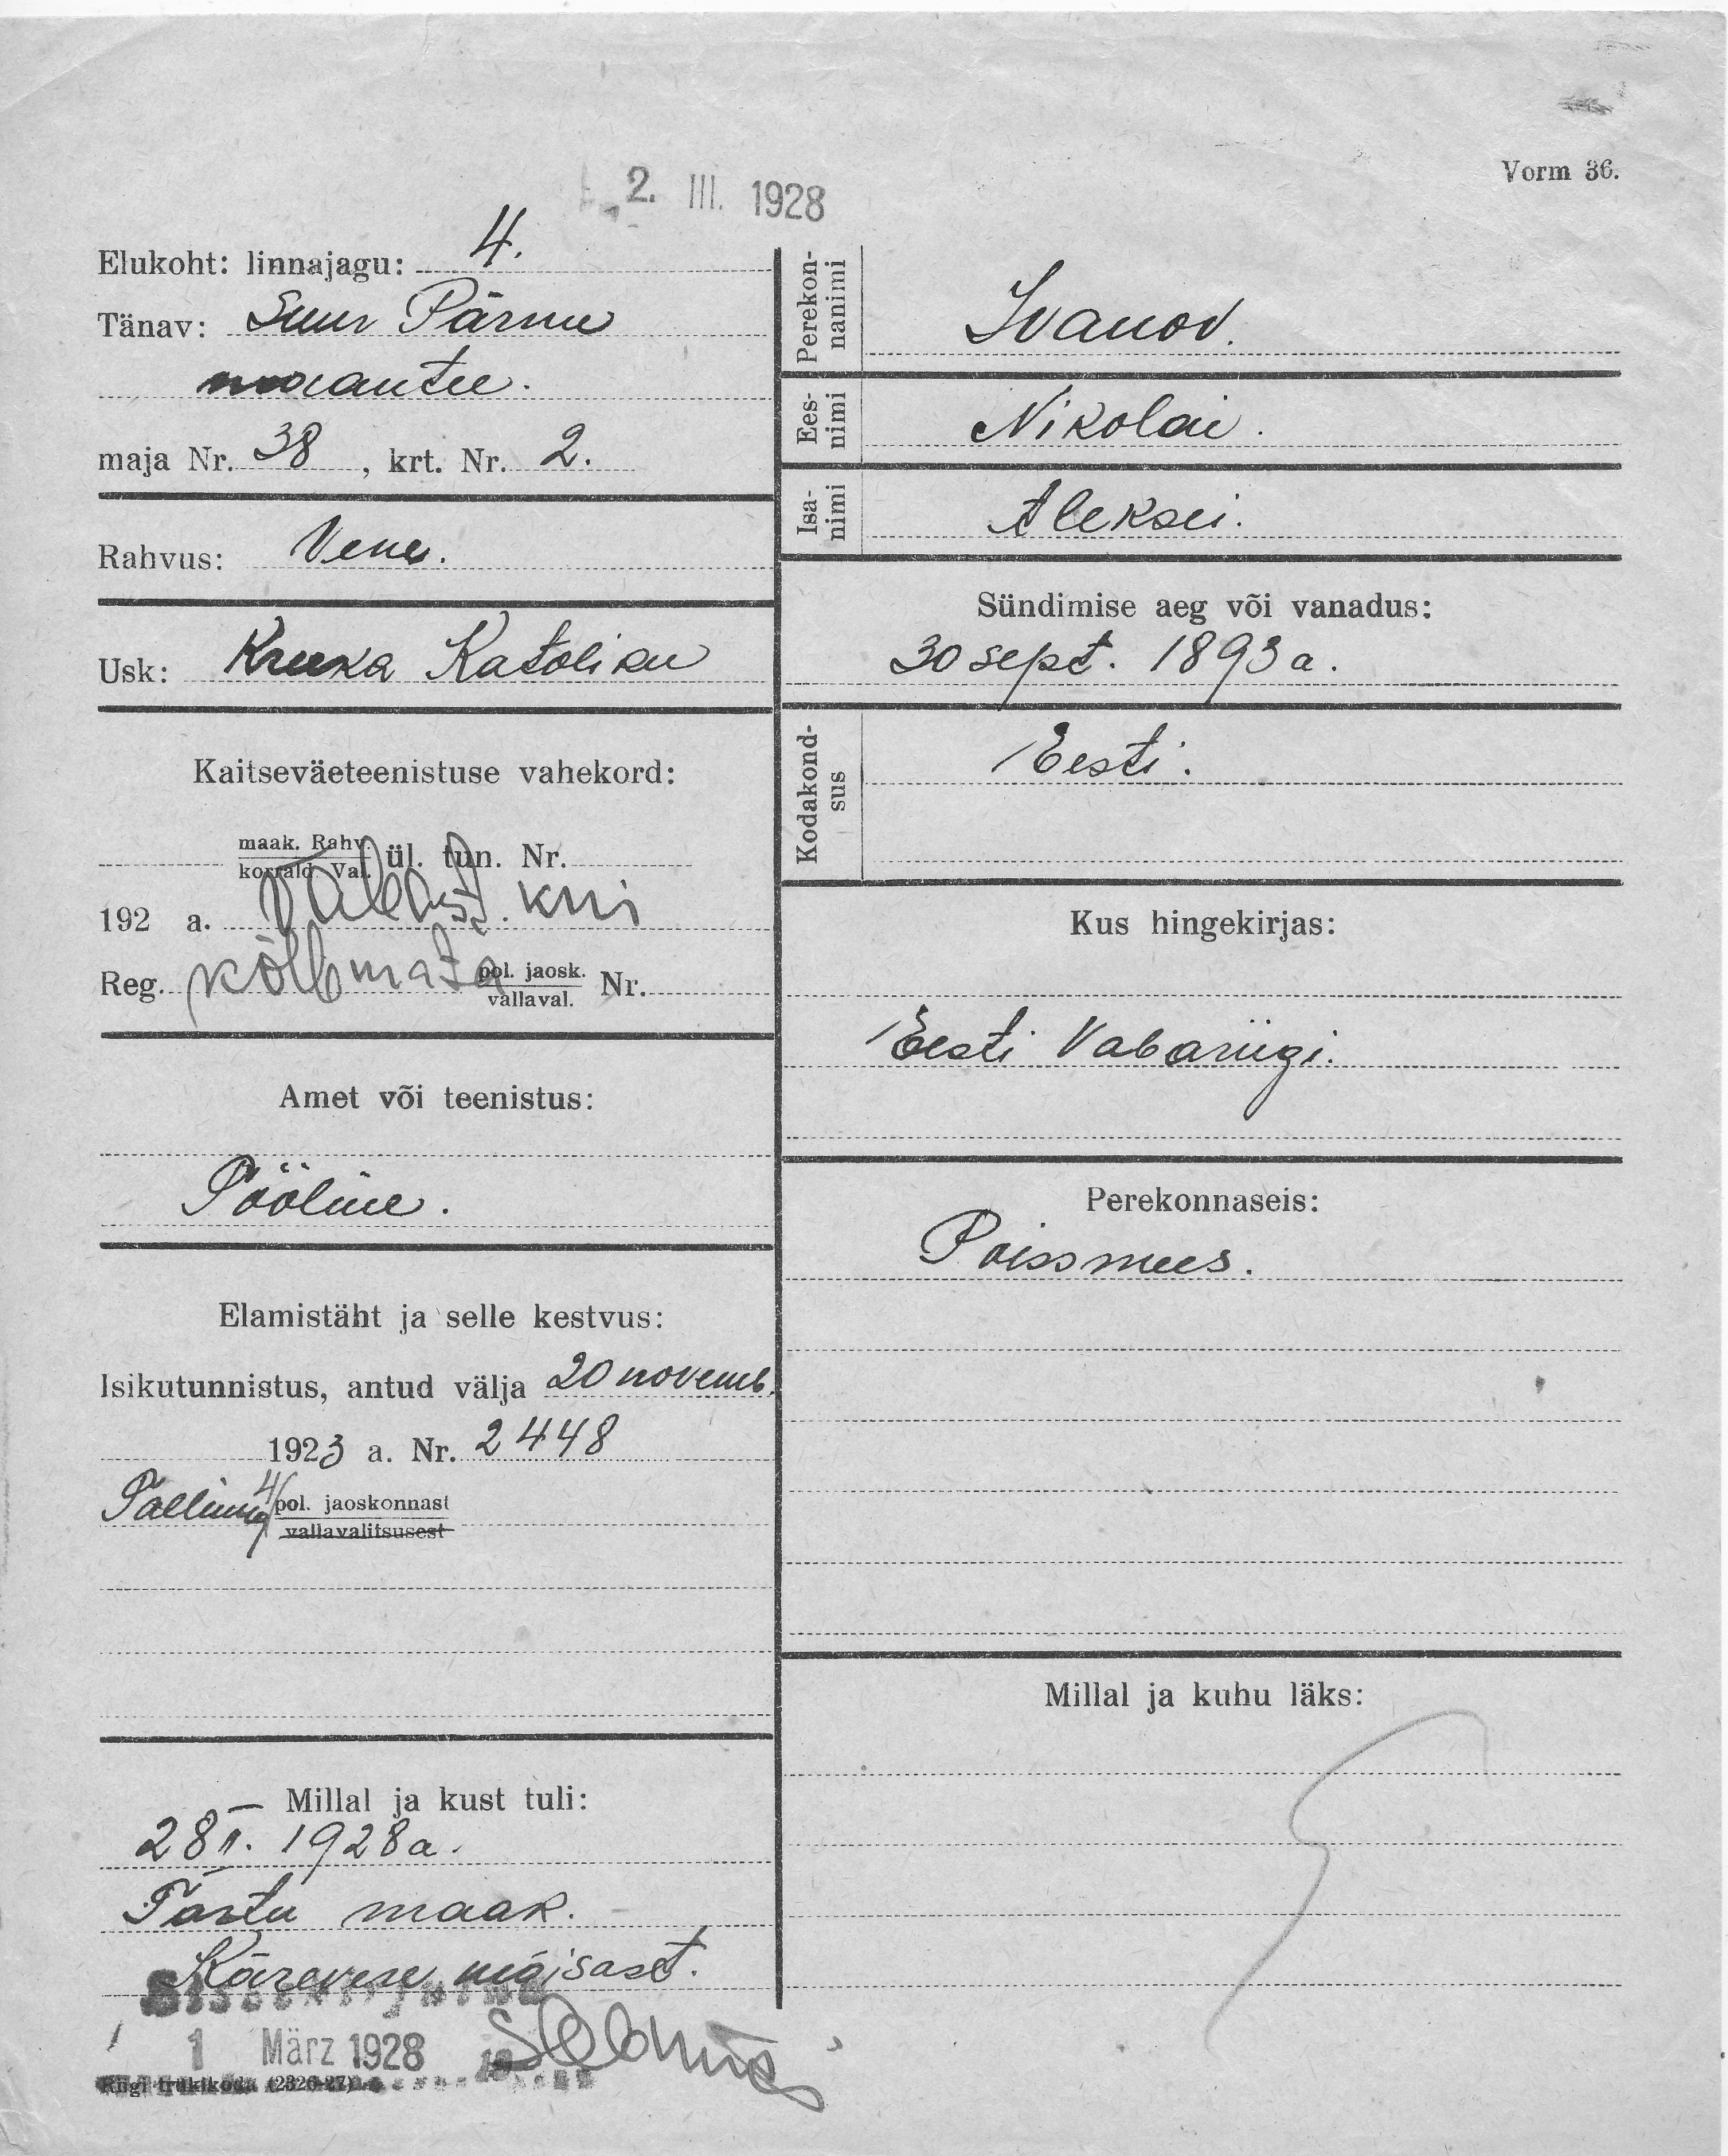 Vorm 36.
2. III. 1928
Elukoht: linnajagu: 4.
Tänav: Suur Pärnu
maantee.
maja Nr. 38, krt. Nr. 2.
Rahvus: Vene.
Usk: Kreeka Katoliku
Kaitseväeteenistuse vahekord:
maak. Rahv.
korrald. Val. ül. tun. Nr.
192 a. Vabast. kui
Reg. kõlbmata pol. jaosk. Nr.
vallaval.
Amet või teenistus:
Tööline.
Elamistäht ja selle kestvus:
Isikutunnistus, antud välja 20 novemb.
1923 a. Nr. 2448
Tallinna 4 pol. jaoskonnast
vallavalitsusest
Millal ja kust tuli:
28 II. 1928 a.
Tartu maak.
Kärevere mõisast.
1 März 1928
Riigi trükikoda (2326-27)
Perekonnanimi
Ivanov.
Eesnimi
Nikolai.
Isanimi
Aleksei.
Sündimise aeg või vanadus:
30 sept. 1893 a.
Kodakondsus
Eesti.
Kus hingekirjas:
Eesti Vabariigi.
Perekonnaseis:
Poissmees.
Millal ja kuhu läks: